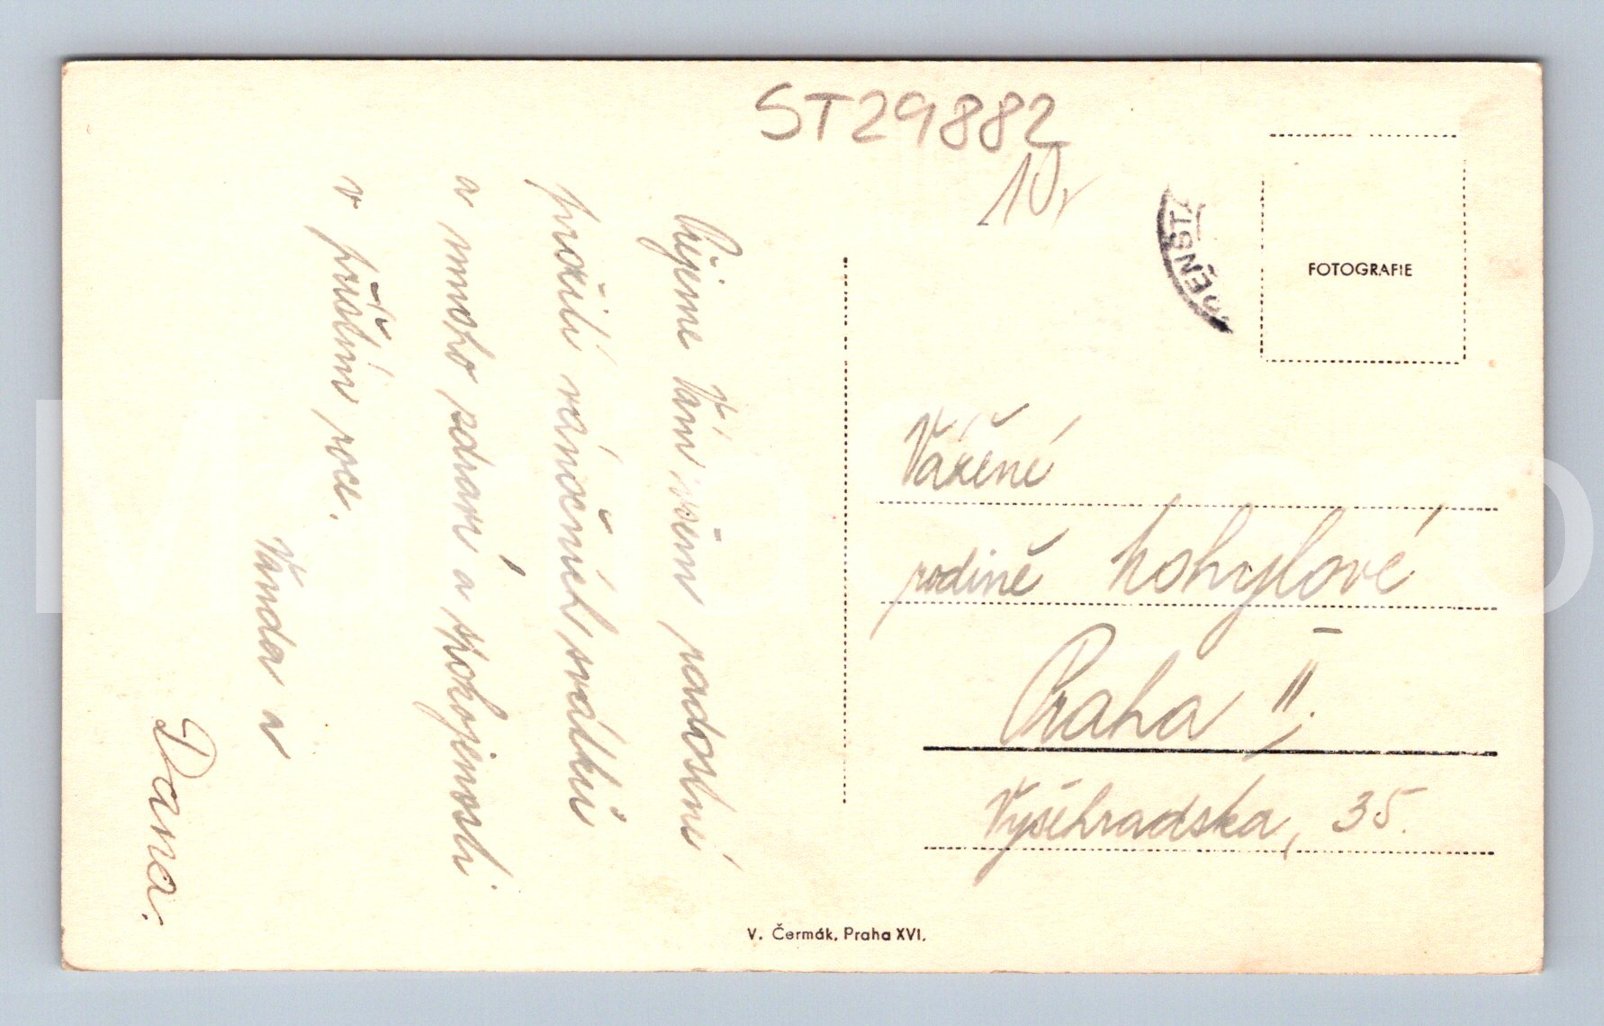 ST29882
10,-
Přejeme Vám všem radostné
prožití vánočních svátků
a mnoho zdraví a spokojenosti
v příštím roce.
Vanda a
Dana.
FOTOGRAFIE
Vážené
rodině Kohylové
Praha II.
Vyšehradská, 35.
V. Čermák, Praha XVI.